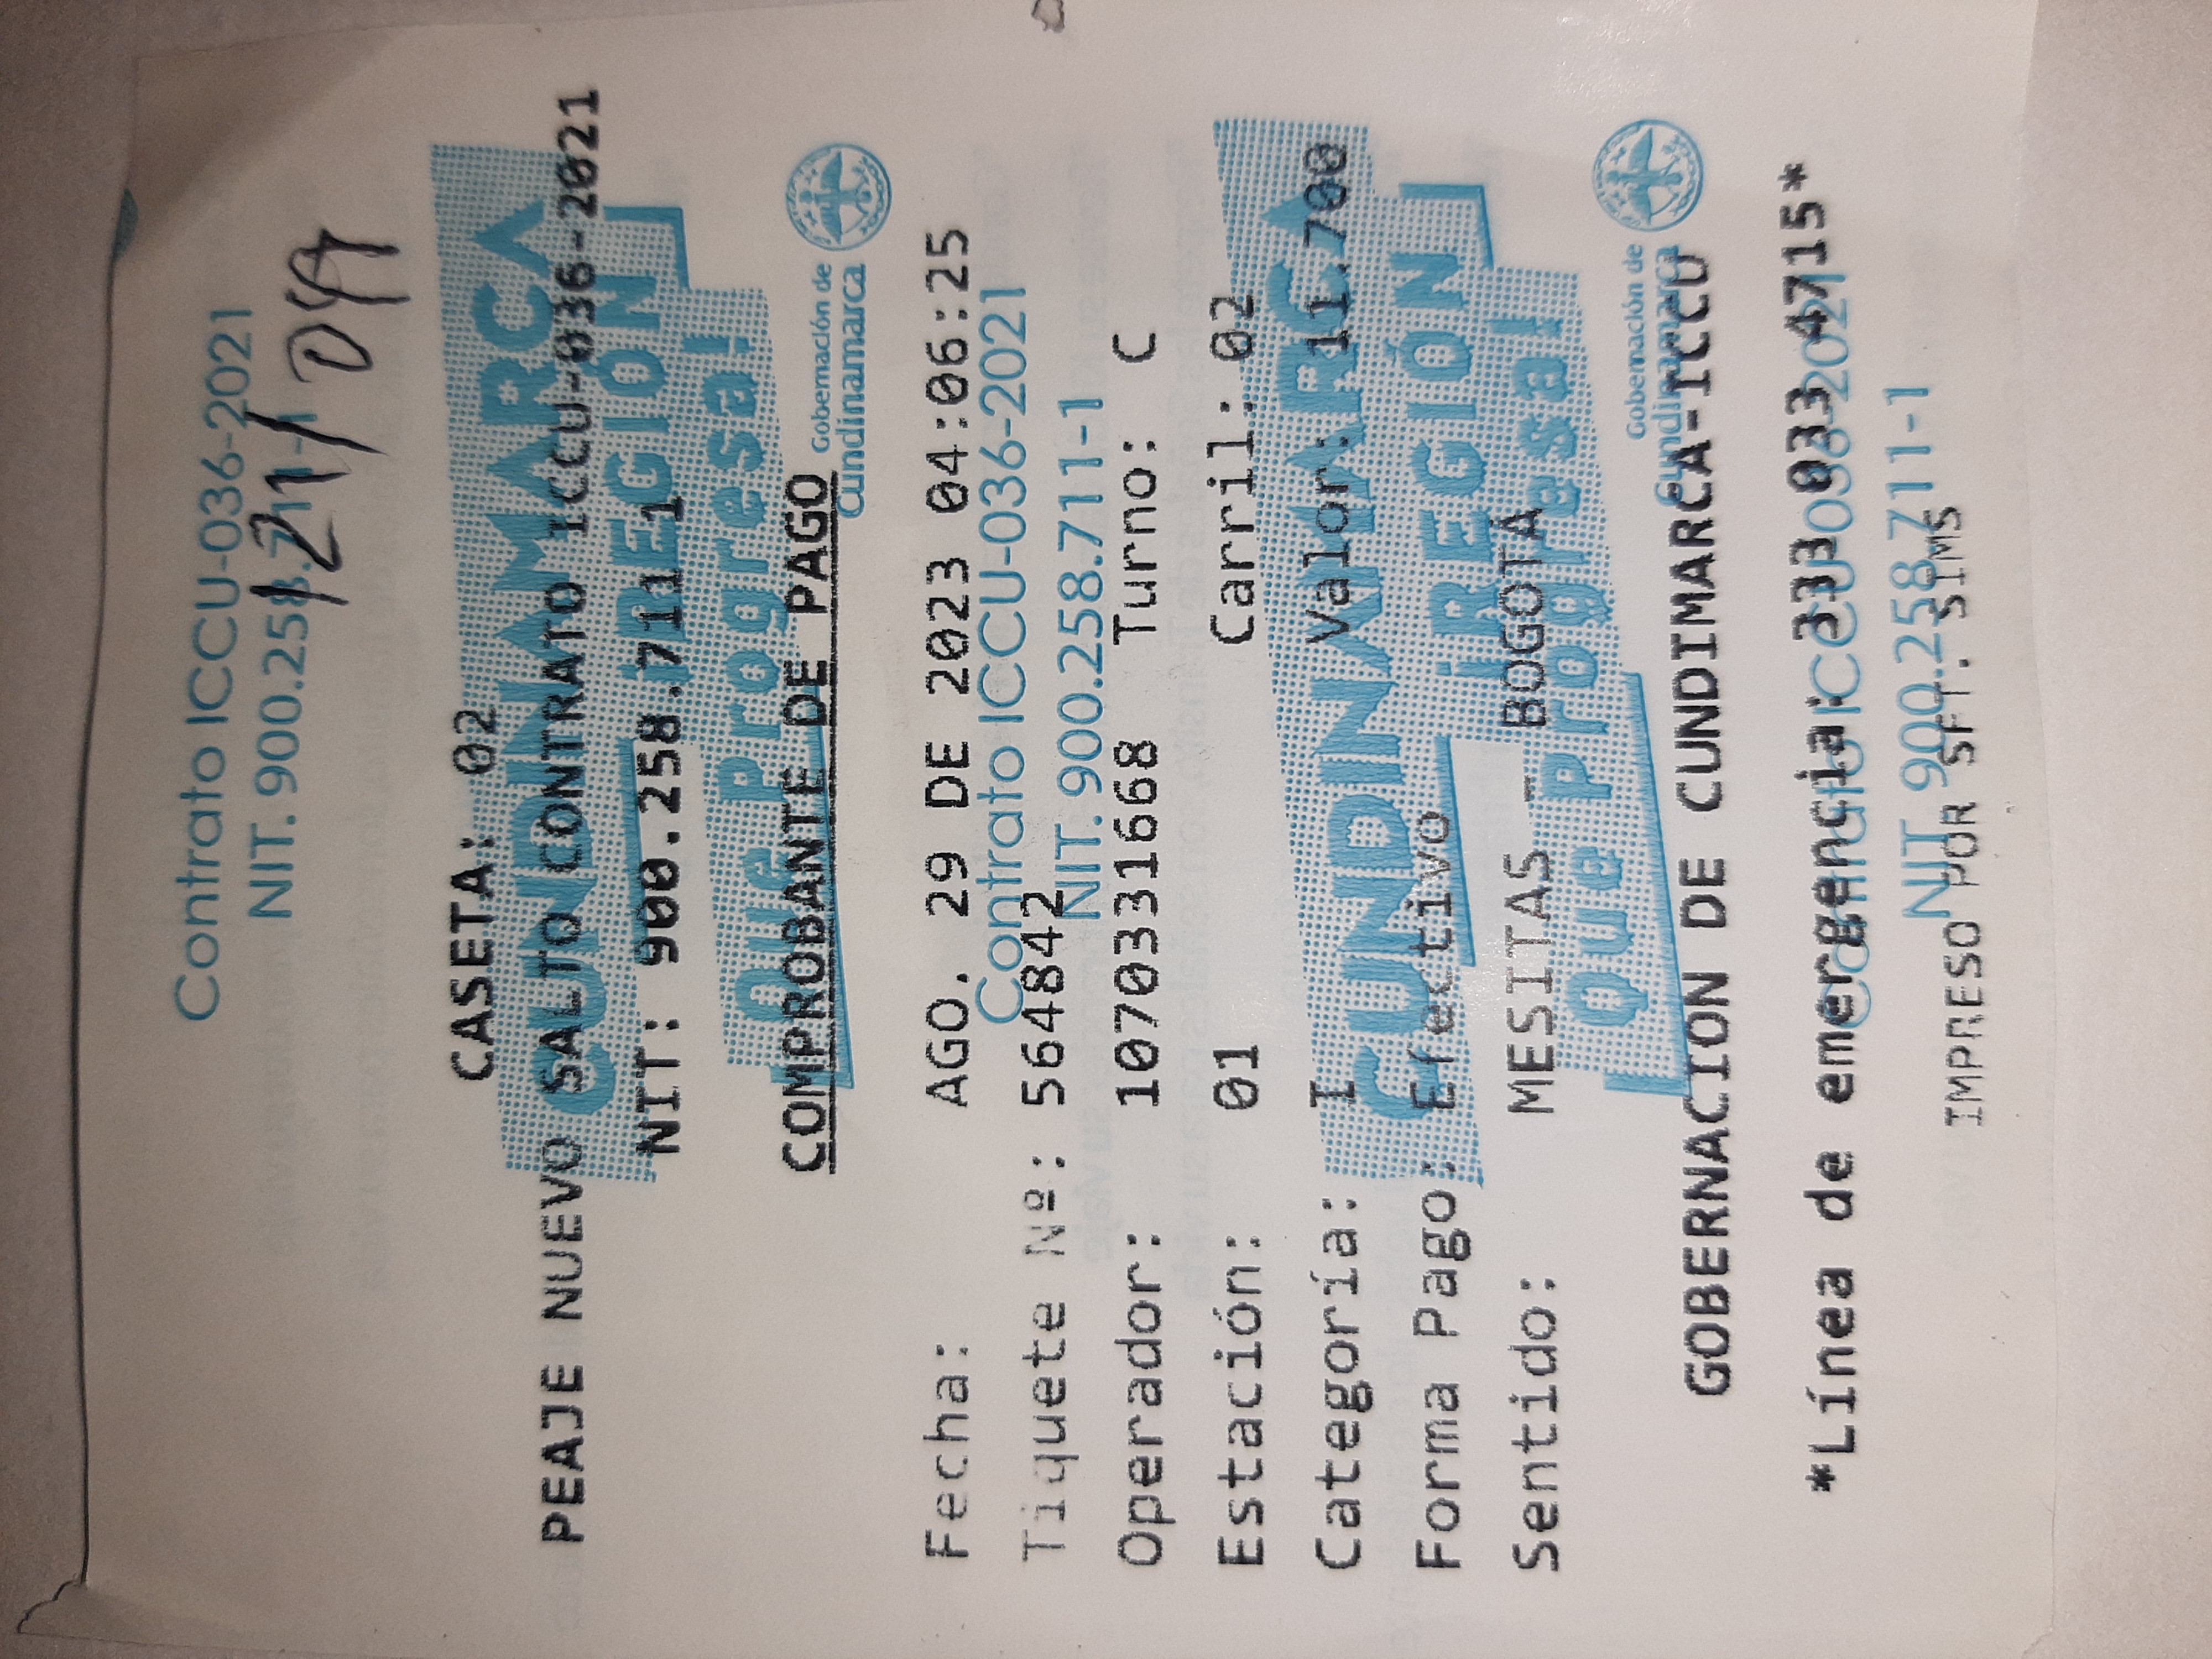 Contrato ICCU-036-2021
NIT. 900.258.711-1
CASETA: 02
PEAJE NUEVO SALTO CONTRATO ICCU-036-2021
NIT: 900.258.711 1
CUNDINAMARCA
¡REGIÓN
Que Progresa!
COMPROBANTE DE PAGO
Gobernación de
Cundinamarca
Fecha: AGO. 29 DE 2023 04:06:25
Contrato ICCU-036-2021
Tiquete Nº: 564842
NIT. 900.258.711-1
Operador: 1070331668 Turno: C
Estación: 01 Carril: 02
Categoría: I Valor: 11.700
CUNDINAMARCA
Forma Pago: Efectivo
¡REGIÓN
Sentido: MESITAS - BOGOTÁ
Que Progresa!
Gobernación de
Cundinamarca
GOBERNACION DE CUNDIMARCA-ICCU
*Línea de emergencia: 333 033 4715*
Contrato ICCU-036-2021
NIT. 900.258.711-1
IMPRESO POR SFT. SIMS